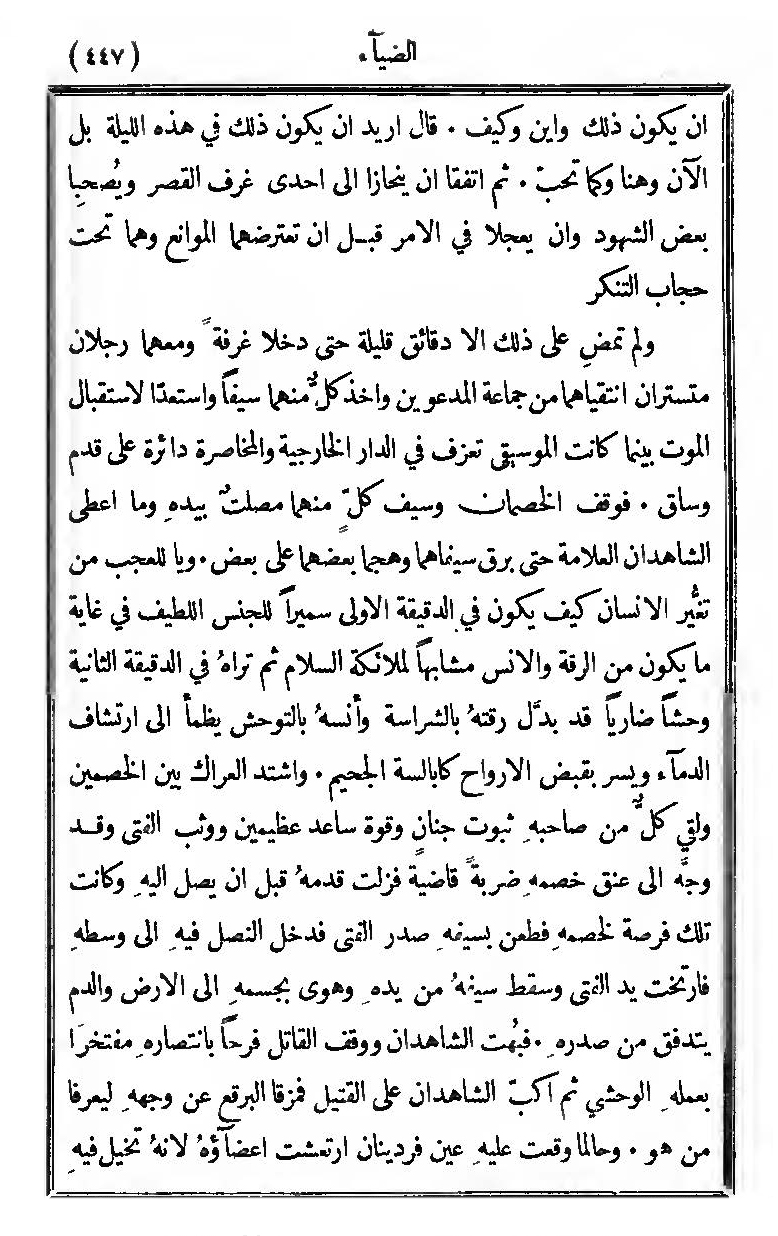 الضيآء (٤٤٧)
ان يكون ذلك واين وكيف ٠ قال اريد ان يكون ذلك في هذه الليلة بل
الآن وهنا وكما تحبّ ٠ ثم اتفقا ان ينحازا الى احدى غرف القصر ويُصحبا
بعض الشهود وان يعجلا في الامر قبل ان تعترضهما الموانع وهما تحت
حجاب التنكر
ولم تمضِ على ذلك الا دقائق قليلة حتى دخلا غرفةً ومعهما رجلان
متستران انتقياهما من جماعة المدعوين واخذ كلٌّ منهما سيفاً واستعدّا لاستقبال
الموت بينما كانت الموسيقى تعزف في الدار الخارجية والمخاصرة دائرة على قدم
وساق ٠ فوقف الخصمان وسيف كلٍّ منهما مصلتٌ بيدهِ وما اعطى
الشاهدان العلامة حتى برق سيفاهما وهجما بعضهما على بعض ٠ ويا للعجب من
تغيُّر الانسان كيف يكون في الدقيقة الاولى سميراً للجنس اللطيف في غاية
ما يكون من الرقة والانس مشابهاً لملائكة السلام ثم تراهُ في الدقيقة الثانية
وحشاً ضارياً قد بدَّل رقتهُ بالشراسة وأنسهُ بالتوحش يظمأ الى ارتشاف
الدمآء ويسر بقبض الارواح كابالسة الجحيم ٠ واشتد العراك بين الخصمين
ولقي كلٌّ من صاحبهِ ثبوت جنانٍ وقوة ساعد عظيمين ووثب الفتى وقد
وجَّه الى عنق خصمهِ ضربةً قاضيةً فزلت قدمهُ قبل ان يصل اليهِ وكانت
تلك فرصة لخصمهِ فطعن بسيفهِ صدر الفتى فدخل النصل فيهِ الى وسطهِ
فارتخت يد الفتى وسقط سيفهُ من يدهِ وهوى بجسمهِ الى الارض والدم
يتدفق من صدرهِ ٠ فبُهت الشاهدان ووقف القاتل فرحاً بانتصارهِ مفتخرًا
بعملهِ الوحشي ثم اكبّ الشاهدان على القتيل فمزقا البرقع عن وجههِ ليعرفا
من هو ٠ وحالما وقعت عليهِ عين فردينان ارتعشت اعضآؤهُ لانهُ تخيل فيهِ